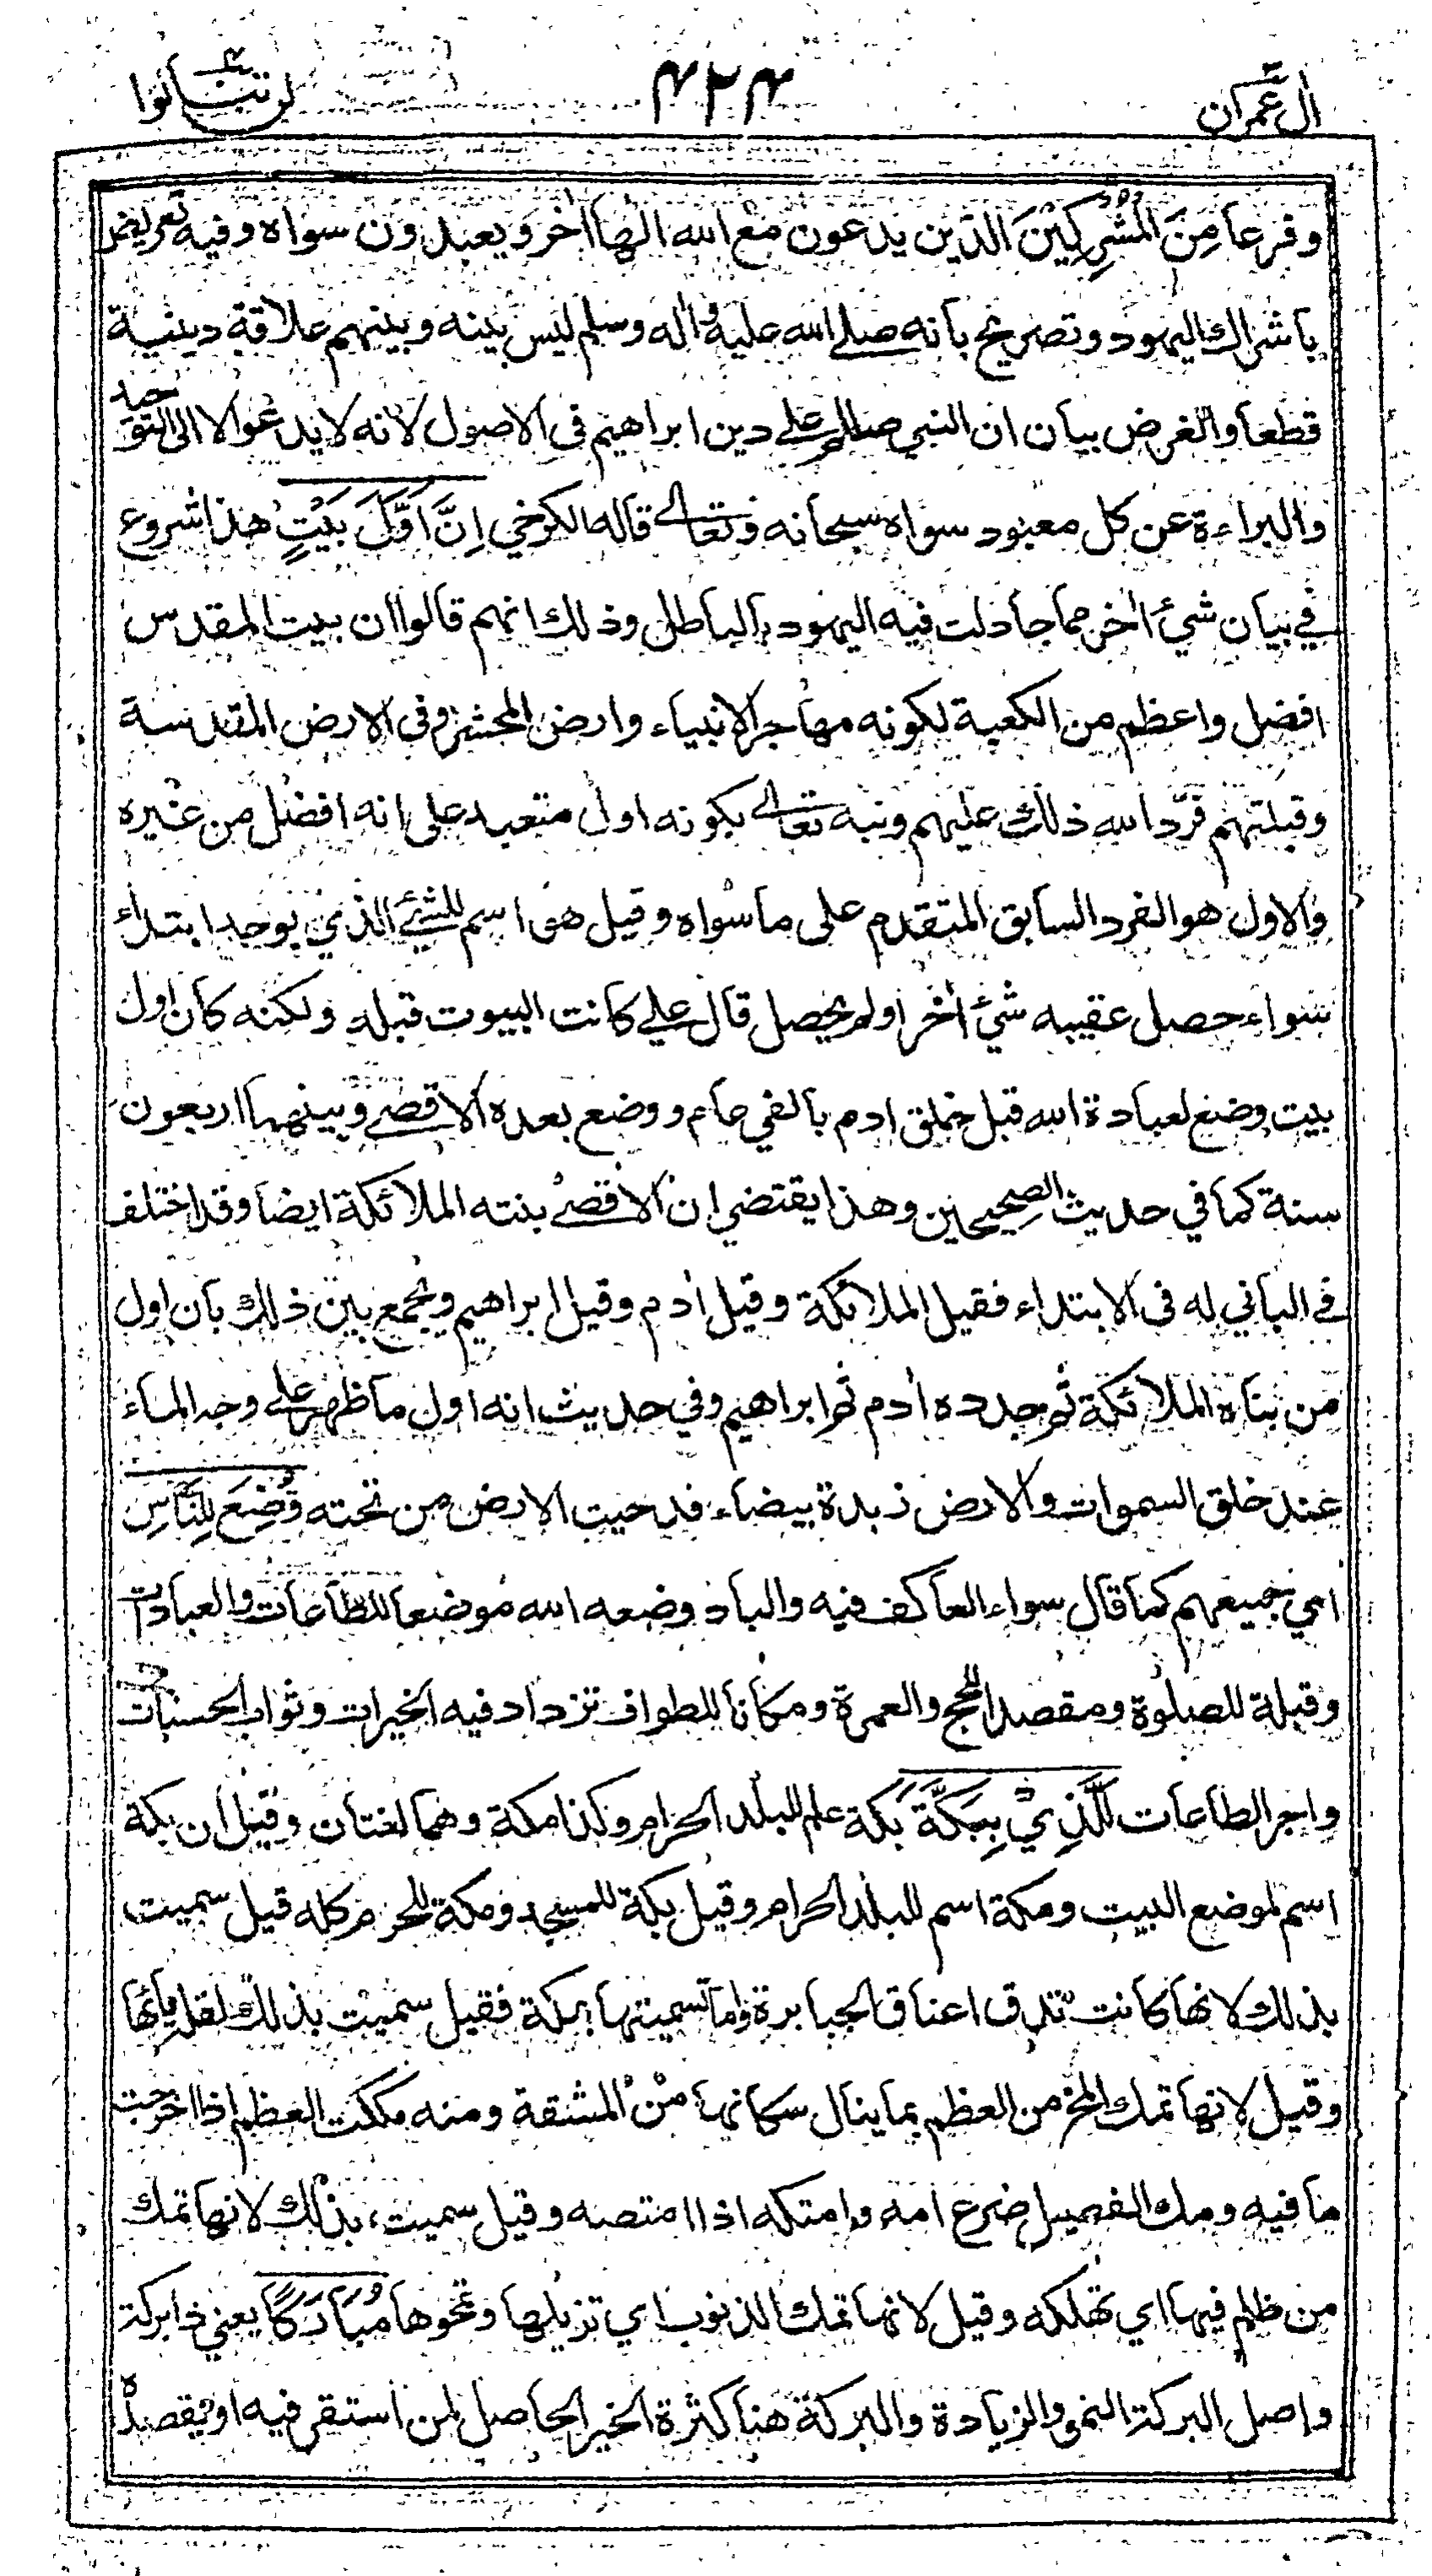 اٰل عمران
۴۲۴
لن تنالوا ۴
وفرعا مِنَ الْمُشْرِكِيْنَ الذين يدعون مع الله الٰها اٰخر ويعبدون سواه وفيه تعريض
باشراك اليهود وتصريح بانه صلى الله عليه واٰله وسلم ليس بينه وبينهم علاقة دينية
قطعا والغرض بيان ان النبي صللم على دين ابراهيم فى الاصول لانه لا يدعو الا الى التوحيد
والبراءة عن كل معبود سواه سبحانه وتعالى قاله الكرخي اِنَّ اَوَّلَ بَيْتٍ هذا شروع
في بيان شئ اٰخر مما جادلت فيه اليهود بالباطل وذلك انهم قالوا ان بيت المقدس
افضل واعظم من الكعبة لكونه مهاجر الانبياء وارض المحشر وفى الارض المقدسة
وقبلتهم فردّ الله ذلك عليهم ونبه تعالى بكونه اول متعبد على انه افضل من غيره
والاول هو الفرد السابق المتقدم على ما سواه وقيل هو اسم للشئ الذي يوجد ابتداء
سواء حصل عقيبه شئ اٰخر او لم يحصل قال علي كانت البيوت قبله ولكنه كان اول
بيت وضع لعبادة الله قبل خلق اٰدم بالفي عام ووضع بعده الاقصى وبينهما اربعون
سنة كما في حديث الصحيحين وهذا يقتضي ان الاقصى بنته الملائكة ايضا وقد اختلف
في الباني له فى الابتداء فقيل الملائكة وقيل اٰدم وقيل ابراهيم ويجمع بين ذلك بان اول
من بناه الملائكة ثم جدده اٰدم ثم ابراهيم وفي حديث انه اول ما ظهر على وجه الماء
عند خلق السموات والارض زبدة بيضاء فدحيت الارض من تحته وُضِعَ لِلنَّاسِ
اي جميعهم كما قال سواء العاكف فيه والباد وضعه الله موضعا للطاعات والعبادات
وقبلة للصلوة ومقصدا للحج والعمرة ومكانا للطواف تزداد فيه الخيرات وثواب الحسنات
واجر الطاعات لَلَّذِيْ بِبَكَّةَ بكة علم للبلد الحرام وكذا مكة وهما لغتان وقيل ان بكة
اسم لموضع البيت ومكة اسم للبلد الحرام وقيل بكة للمسجد ومكة للحرم كله قيل سميت
بذلك لانها كانت تدق اعناق الجبابرة واما تسميتها بمكة فقيل سميت بذلك لقلة مائها
وقيل لانها تمك المخ من العظم بما ينال سكانها من المشقة ومنه مككت العظم اذا اخرجت
ما فيه ومك الفصيل ضرع امه وامتكه اذا امتصه وقيل سميت بذلك لانها تمك
من ظلم فيها اي تهلكه وقيل لانها تمك الذنوب اي تزيلها وتمحوها مُبَارَكًا يعني ذا بركة
واصل البركة النمو والزيادة والبركة هنا كثرة الخير الحاصل لمن استقر فيه او يقصده